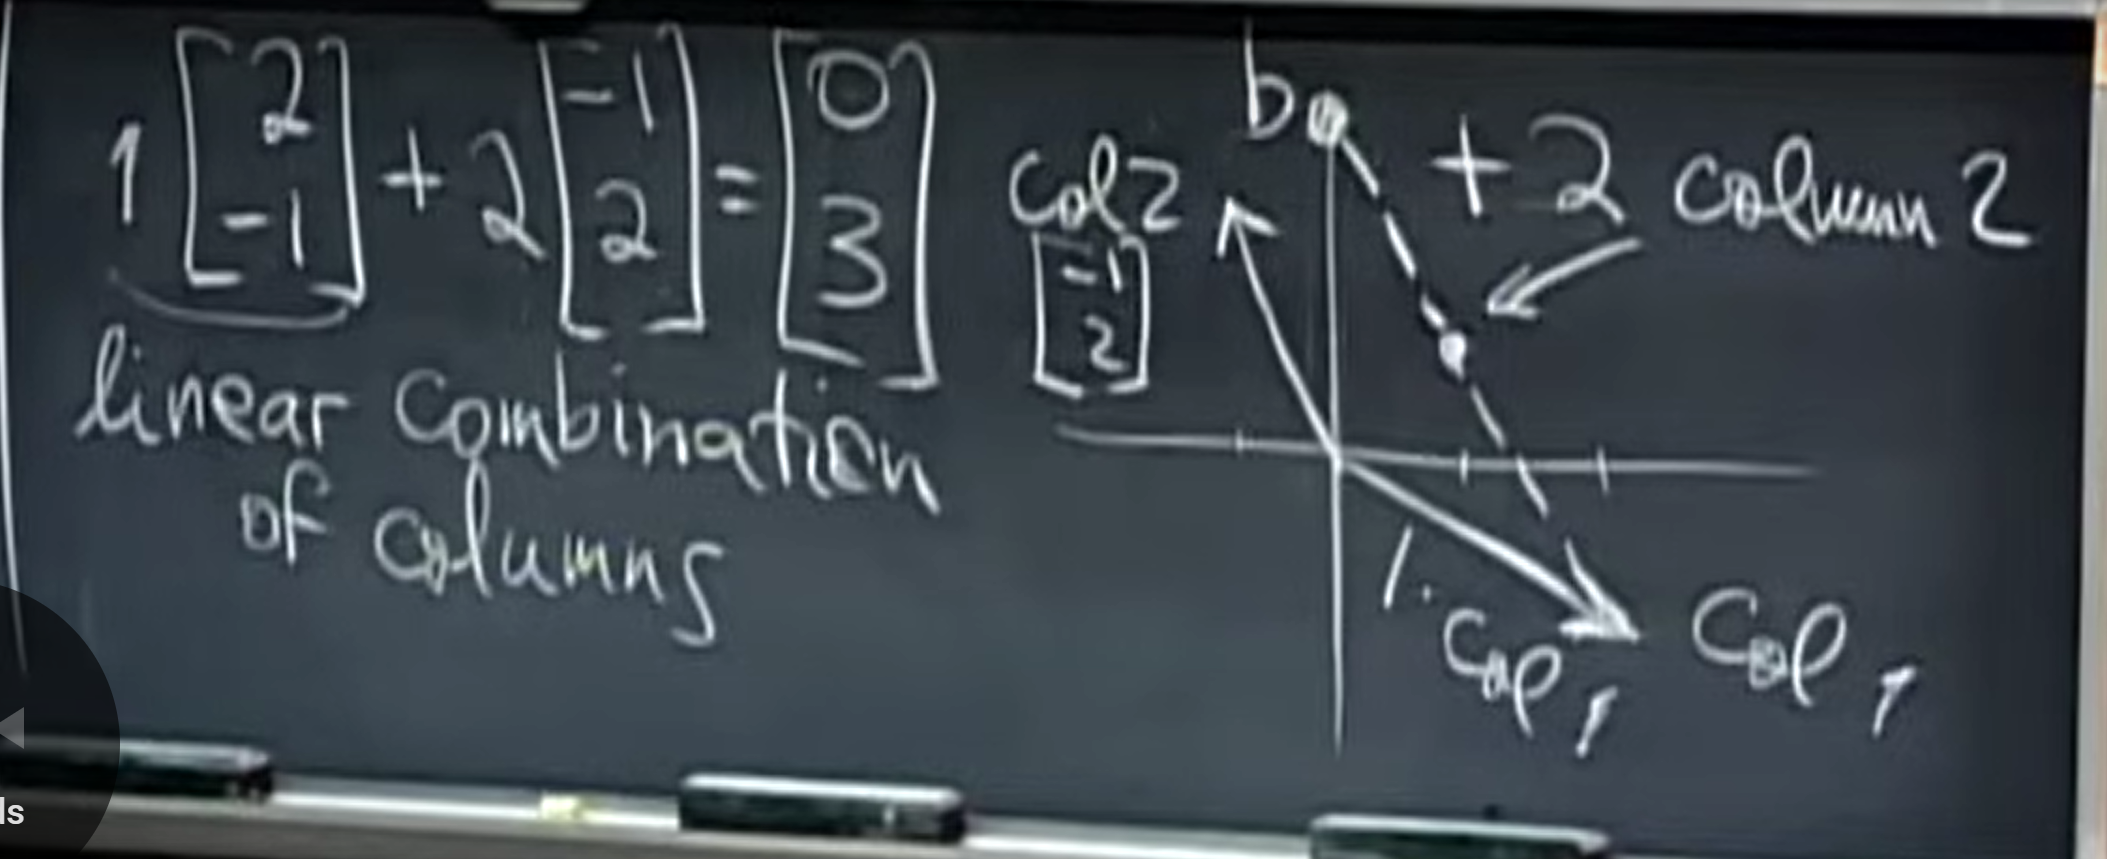 1 [2 -1] + 2 [-1 2] = [0 3]
linear combination
of columns
b
+2 column 2
Col 2
[-1 2]
1. Col 1
Col 1
ls